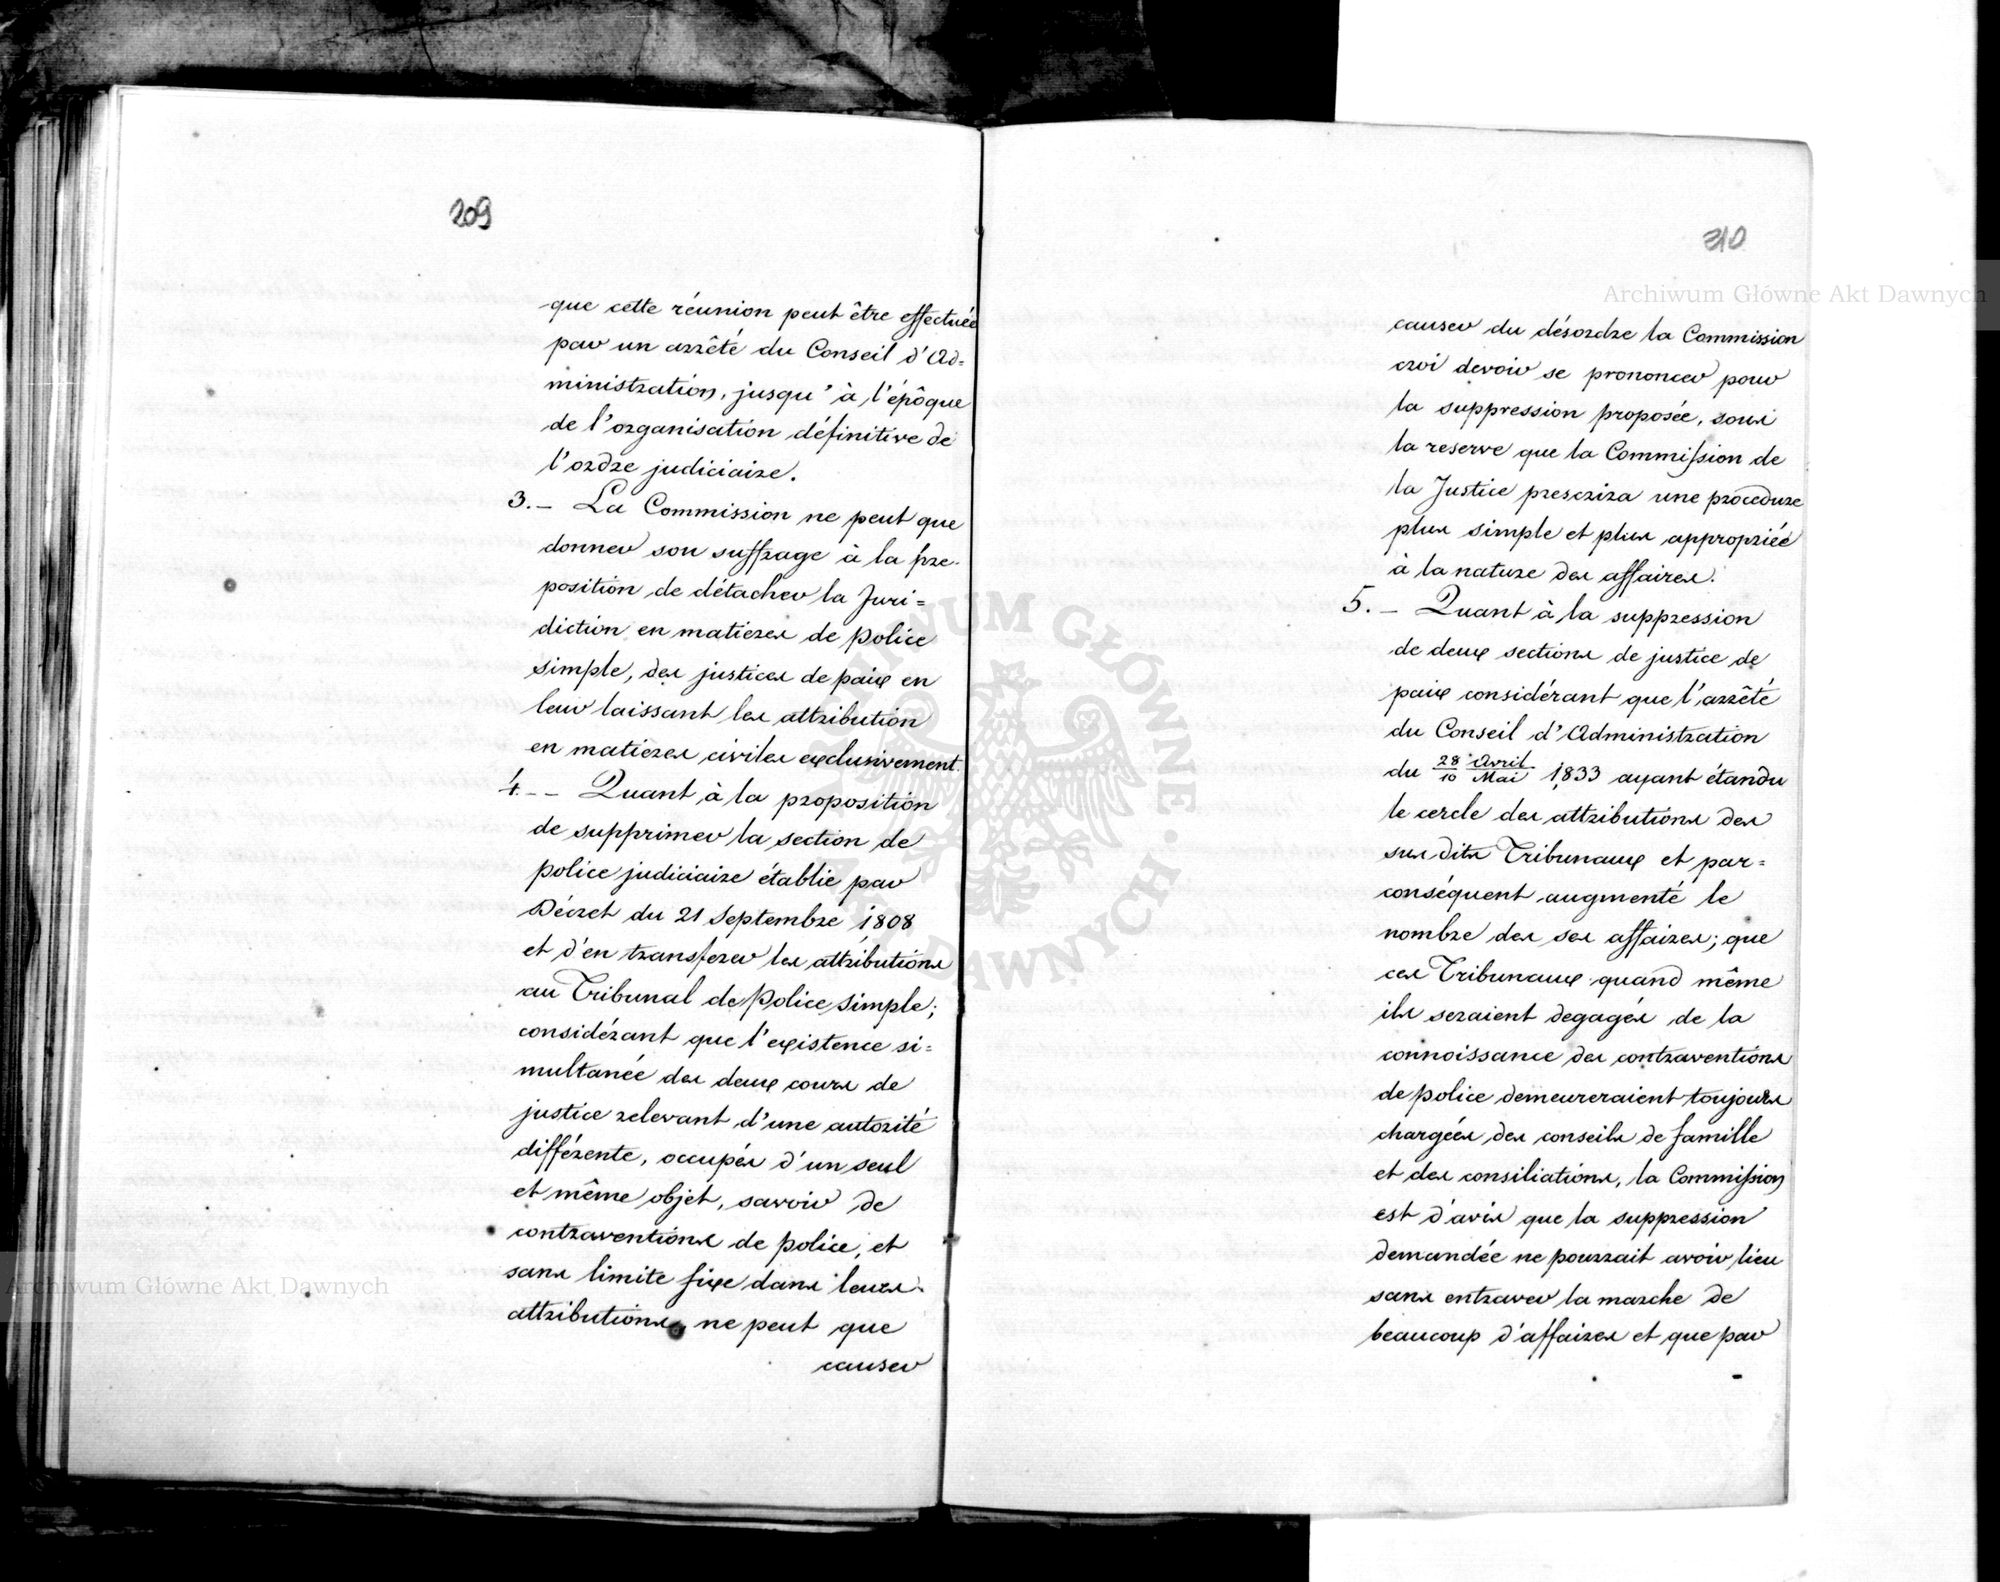 209
que cette réunion peut être effectuée
par un arrêté du Conseil d'Ad=
ministration, jusqu'à l'épôque
de l'organisation définitive de
l'ordre judiciaire.
3. – La Commission ne peut que
donner son suffrage à la pre-
position de détacher la Juri=
diction en matieres de police
simple, des justices de paix en
leur laissant les attribution
en matieres civiles exclusivement.
4. – – Quant à la proposition
de supprimer la section de
police judiciaire établie par
Décret du 21 Septembre 1808
et d'en transferer les attributions
au Tribunal de police simple;
considérant que l'existence si=
multanée des deux cours de
justice relevant d'une autorité
différente, occupés d'un seul
et même objet, savoir de
contraventions de police, et
sans limite fixe dans leurs
attributions, ne peut que
causer
310
causer du désordre la Commission
croi devoir se prononcer pour
la suppression proposée, sous
la reserve que la Commission de
la Justice prescrira une procedure
plus simple et plus appropriée
à la nature des affaires.
5. – Quant à la suppression
de deux sections de justice de
paix considérant que l'arrêté
du Conseil d'Administration
du 28 Avril / 10 Mai 1833 ayant étandu
le cercle des attributions des
sus dits Tribunaux et par=
conséquent augmenté le
nombre des ses affaires; que
ces Tribunaux quand même
ils seraient degagés de la
connoissance des contraventions
de police demeureraient toujours
chargées des conseils de famille
et des consiliations, la Commission
est d'avis que la suppression
demandée ne pourrait avoir lieu
sans entraver la marche de
beaucoup d'affaires et que par
Archiwum Główne Akt Dawnych
Archiwum Główne Akt Dawnych
ARCHIWUM GŁÓWNE AKT DAWNYCH